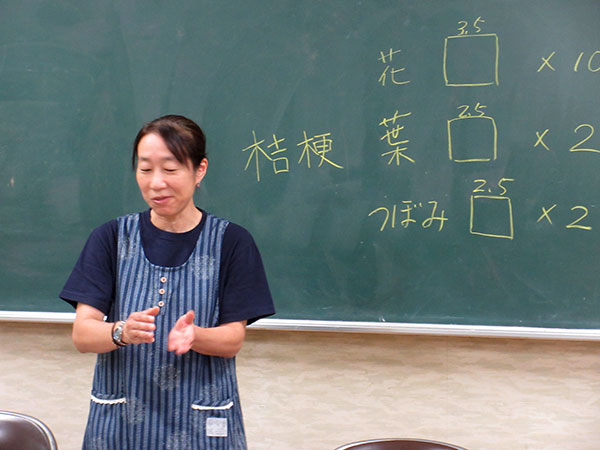 3.5
花 □ × 10
2.5
桔梗 葉 □ × 2
2.5
つぼみ □ × 2